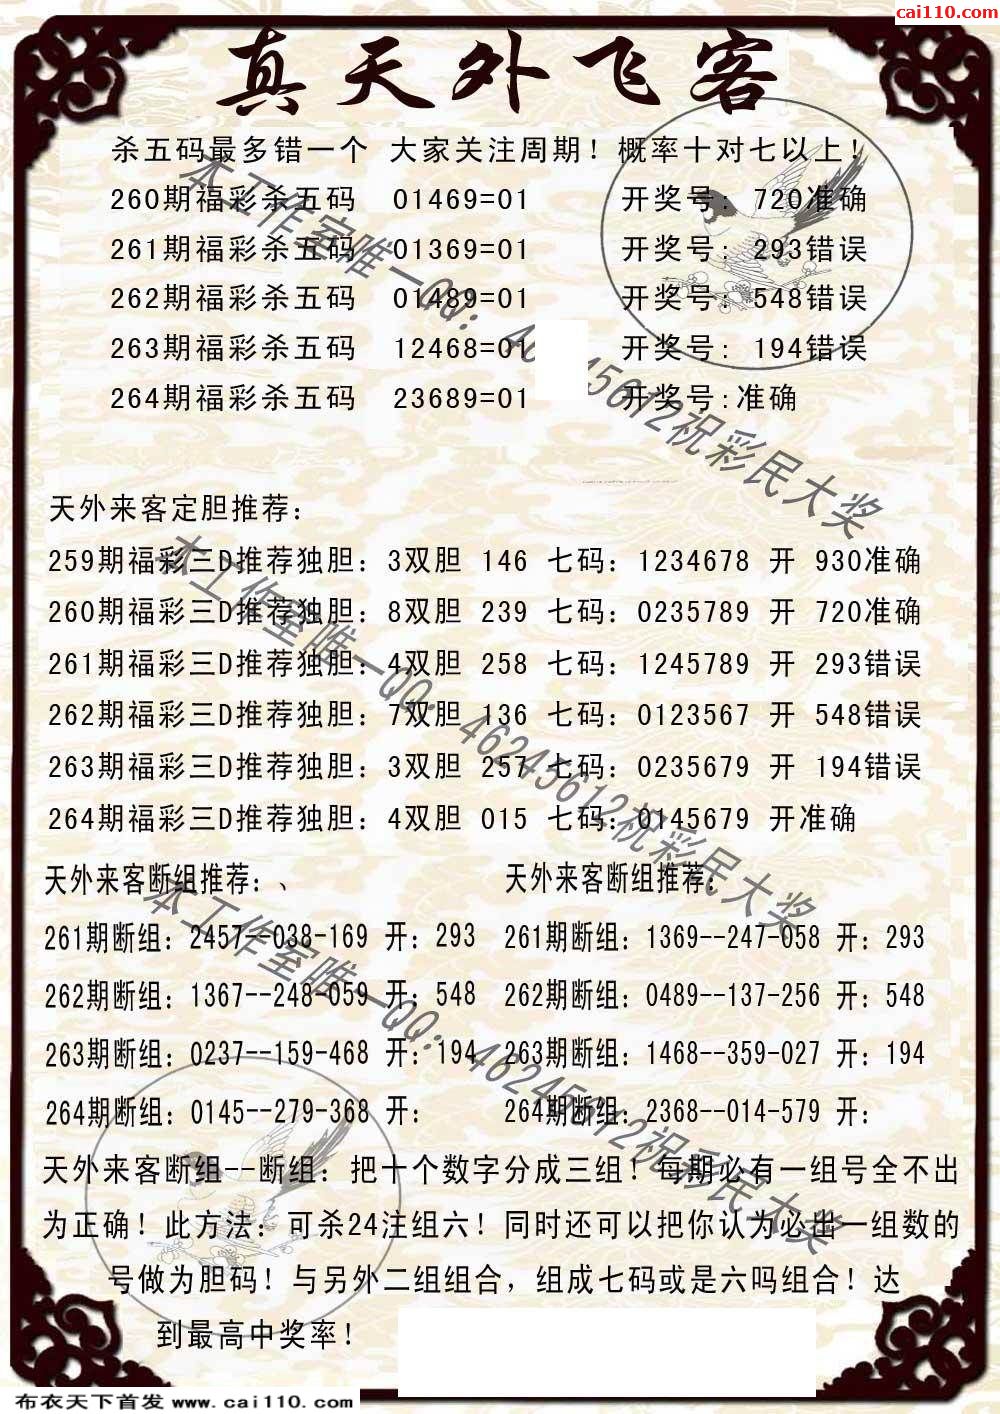 cai110.com
真天外飞客
杀五码最多错一个 大家关注周期！概率十对七以上！
260期福彩杀五码 01469=01 开奖号: 720准确
261期福彩杀五码 01369=01 开奖号: 293错误
262期福彩杀五码 01489=01 开奖号: 548错误
263期福彩杀五码 12468=01 开奖号: 194错误
264期福彩杀五码 23689=01 开奖号:准确
天外来客定胆推荐：
259期福彩三D推荐独胆：3双胆 146 七码：1234678 开 930准确
260期福彩三D推荐独胆：8双胆 239 七码：0235789 开 720准确
261期福彩三D推荐独胆：4双胆 258 七码：1245789 开 293错误
262期福彩三D推荐独胆：7双胆 136 七码：0123567 开 548错误
263期福彩三D推荐独胆：3双胆 257 七码：0235679 开 194错误
264期福彩三D推荐独胆：4双胆 015 七码：0145679 开准确
天外来客断组推荐：、 天外来客断组推荐：
261期断组：2457--038-169 开：293 261期断组：1369--247-058 开：293
262期断组：1367--248-059 开：548 262期断组：0489--137-256 开：548
263期断组：0237--159-468 开：194 263期断组：1468--359-027 开：194
264期断组：0145--279-368 开： 264期断组：2368--014-579 开：
天外来客断组--断组：把十个数字分成三组！每期必有一组号全不出
为正确！此方法：可杀24注组六！同时还可以把你认为必出一组数的
号做为胆码！与另外二组组合，组成七码或是六吗组合！达
到最高中奖率！
本工作室唯一QQ：46245612祝彩民大奖
本工作室唯一QQ：46245612祝彩民大奖
本工作室唯一QQ：46245612祝彩民大奖
布衣天下首发 www.cai110.com